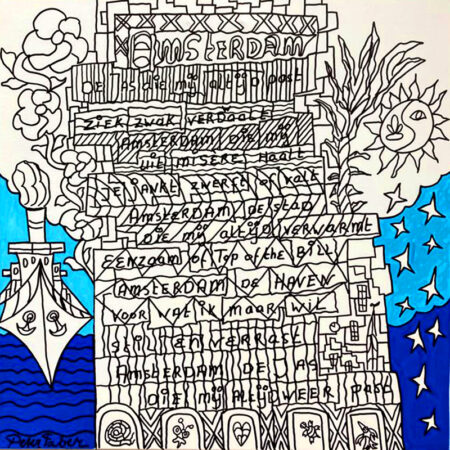 AMSTERDAM
DE JAS die mij altijd past
Ziek zwak verdaald
AMSTERDAM die mij
uit misere haalt
Je jankt zwerft of valt
AMSTERDAM de stad
die mij altijd verwarmt
Eenzaam of Top of the Bill
AMSTERDAM de HAVEN
Voor wat ik maar wil
Stil en verrast
AMSTERDAM de JAS
die mij altijd weer past
Peter Faber